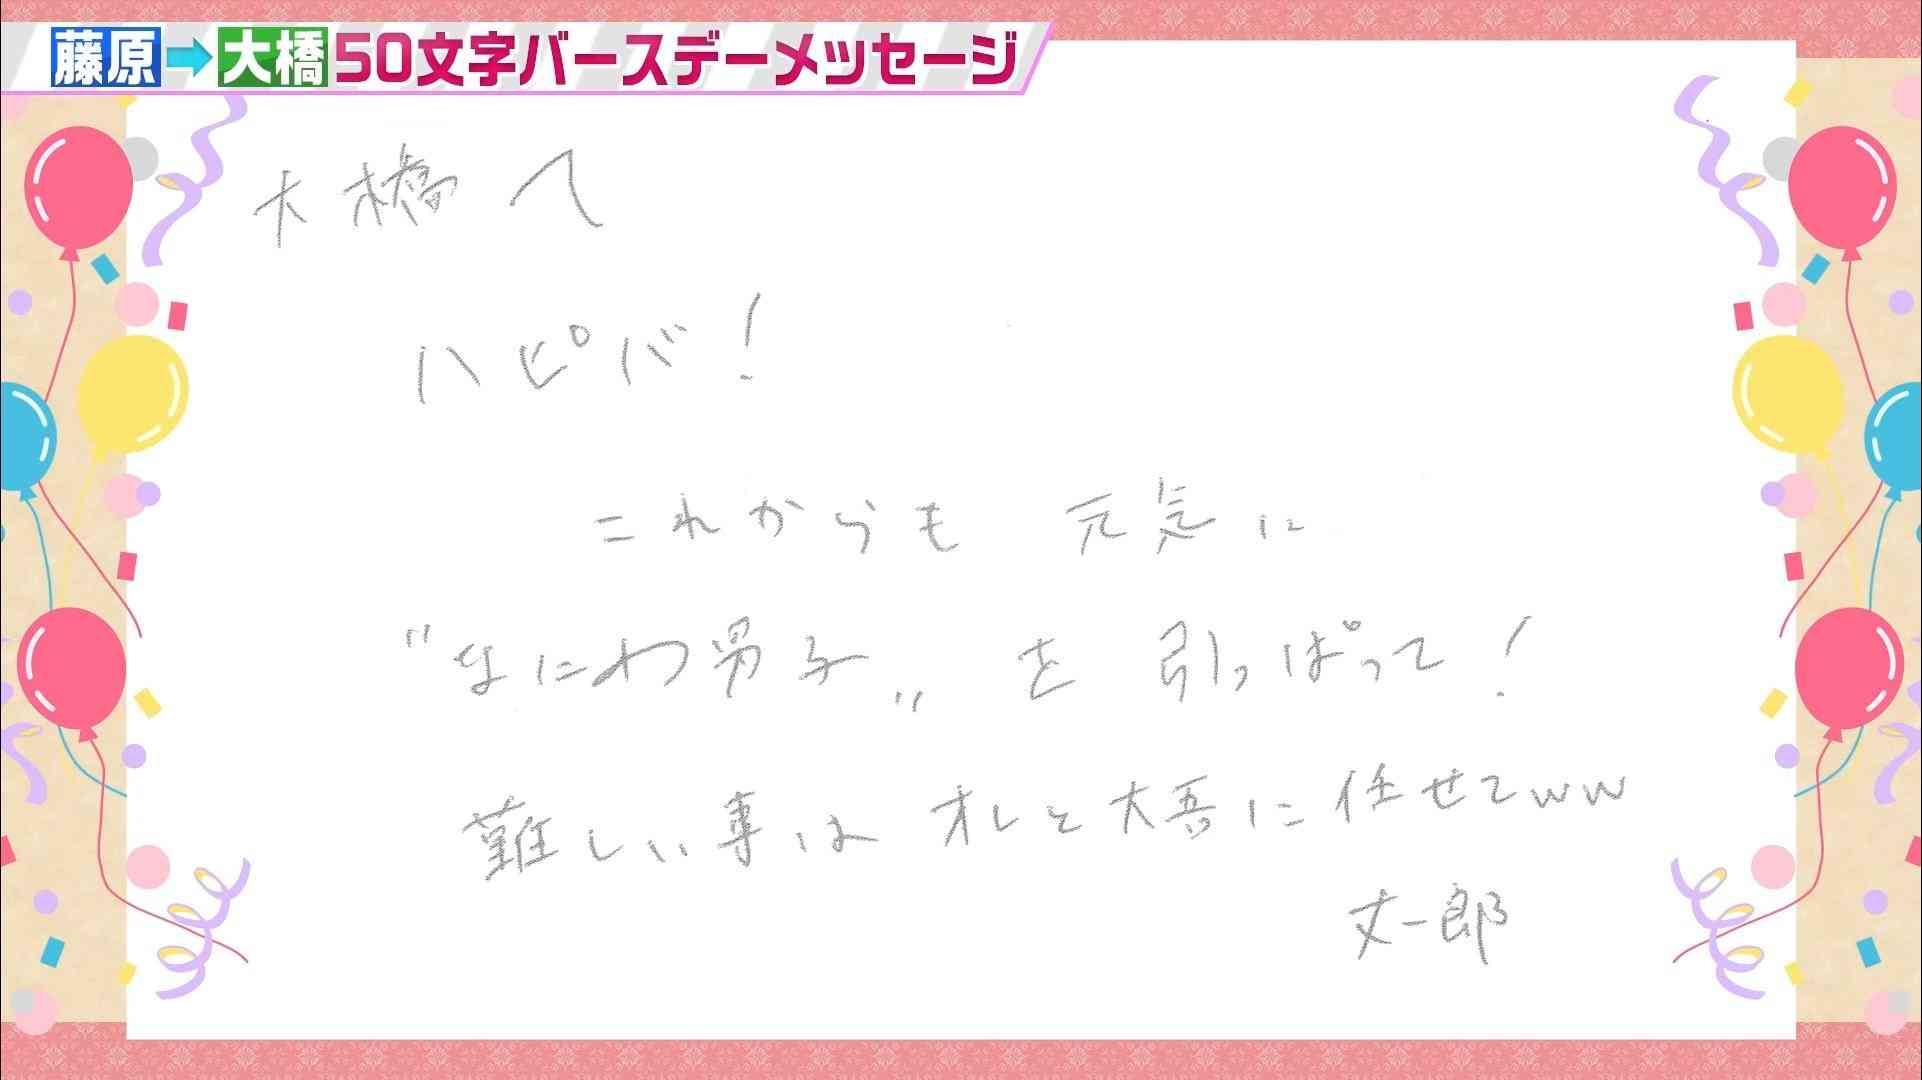 藤原➡大橋50文字バースデーメッセージ
大橋へ
ハピバ!
これからも 元気に
"なにわ男子„ を 引っぱって!
難しい事は オレと大吾に任せてww
丈一郎